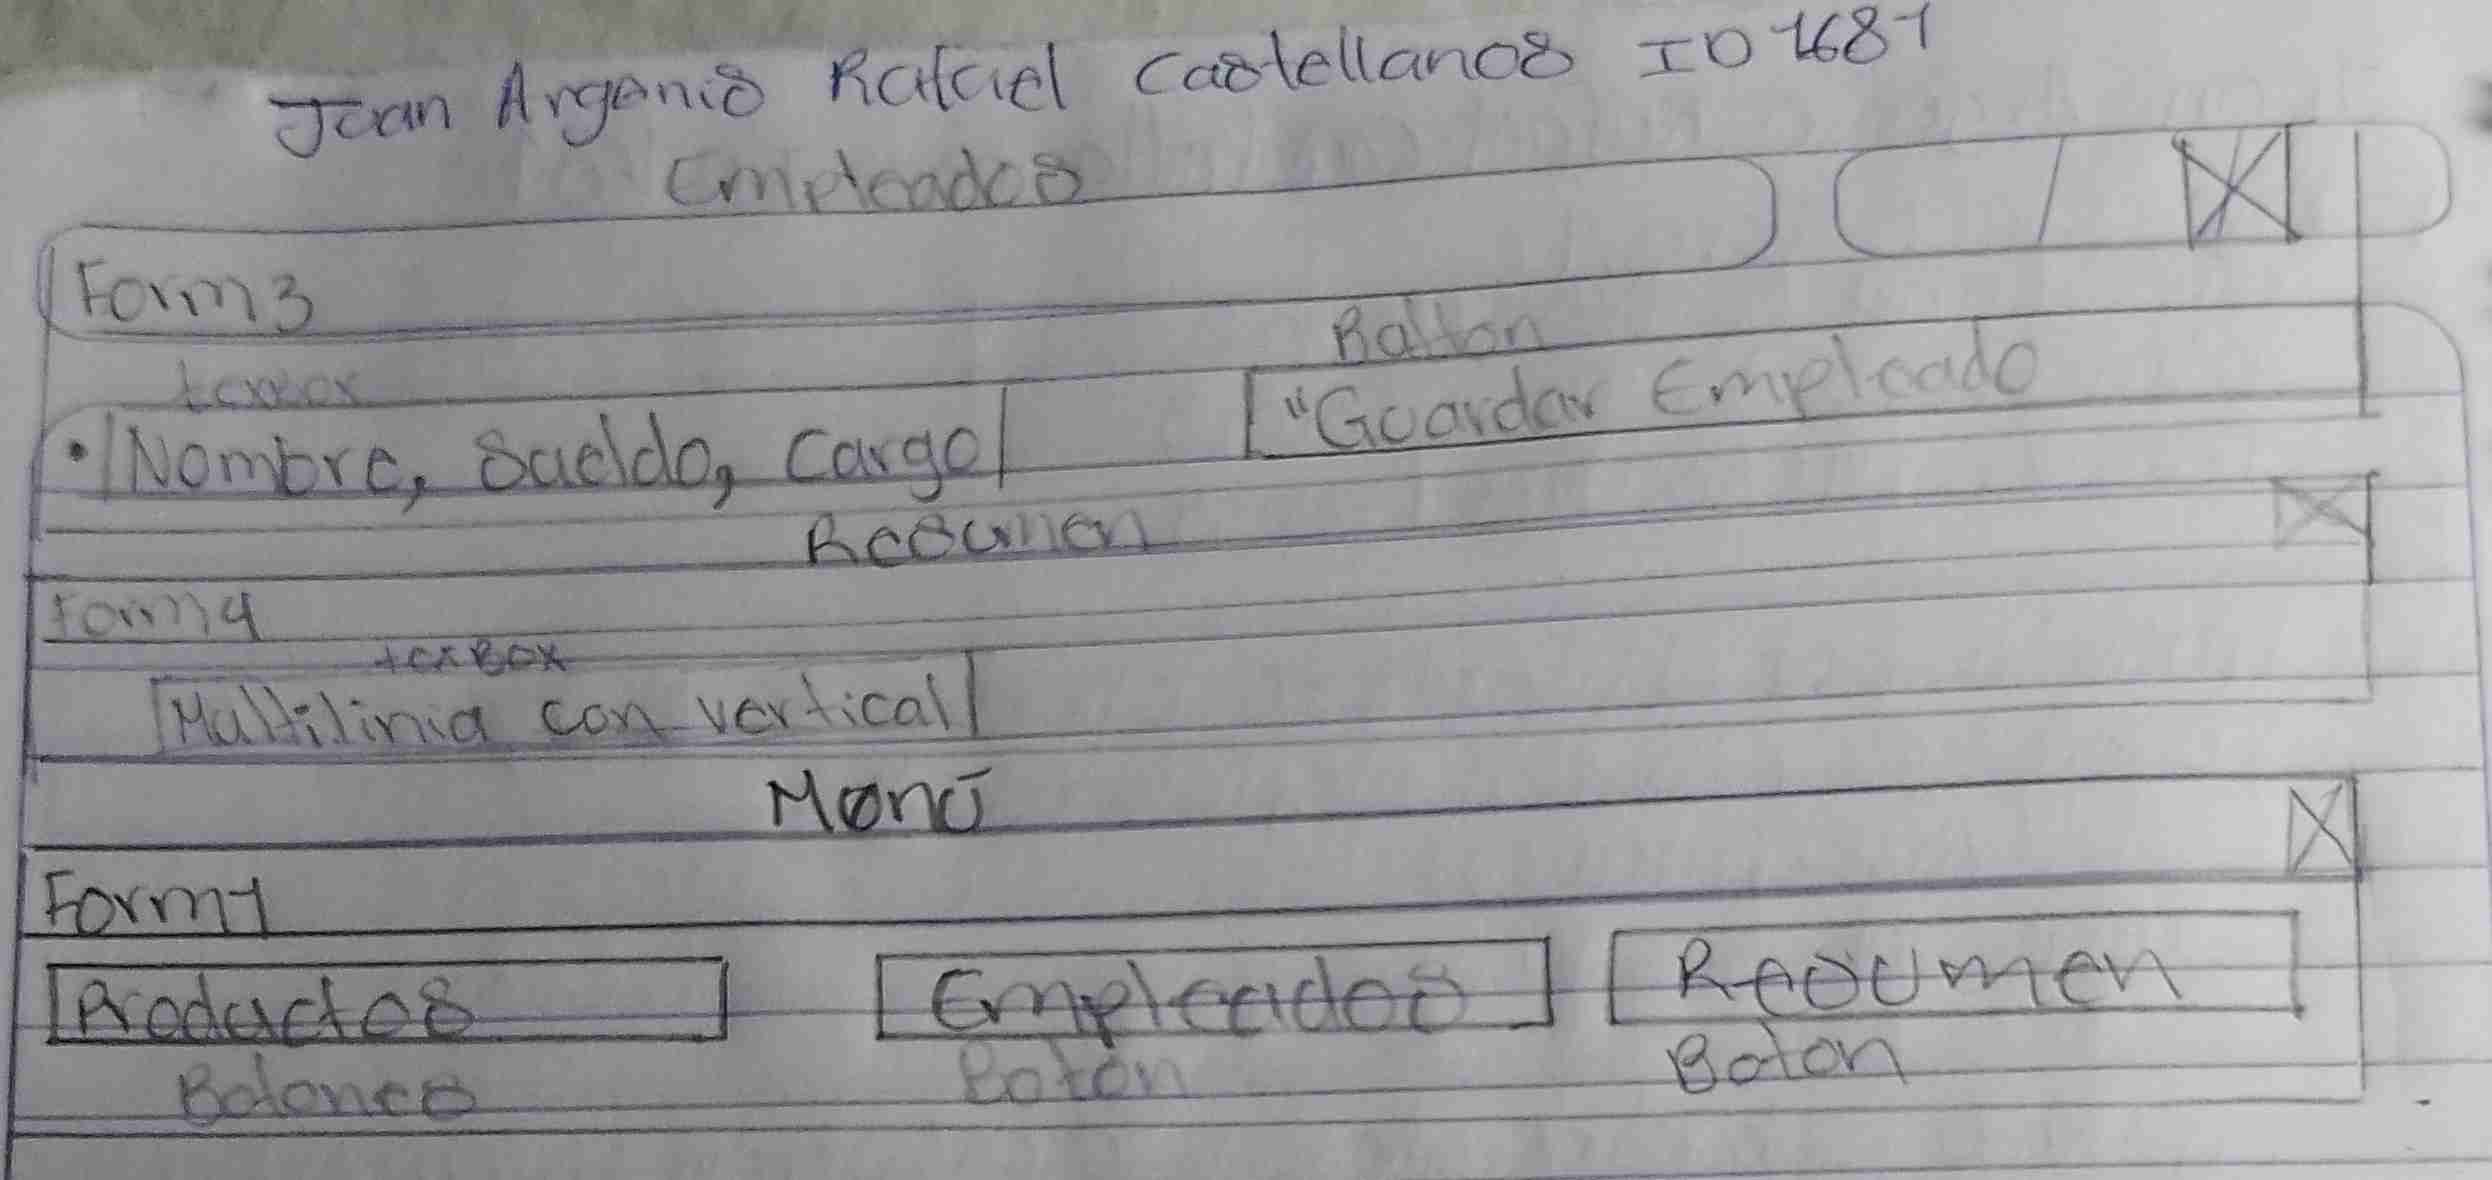 Juan Argenis Rafael Castellanos ID 1681
Empleados
Form3
texbox
Balton
• Nombre, Sueldo, Cargo
"Guardar Empleado
Resumen
Form4
texBox
Multilinia con vertical
Menú
Form1
Productos
Empleados
Resumen
Botones
Botón
Boton